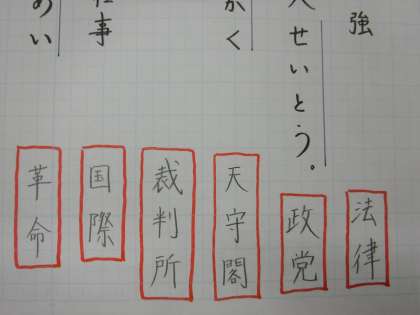 強
法律
せいとう。
政党
かく
天守閣
裁判所
仕事
国際
めい
革命